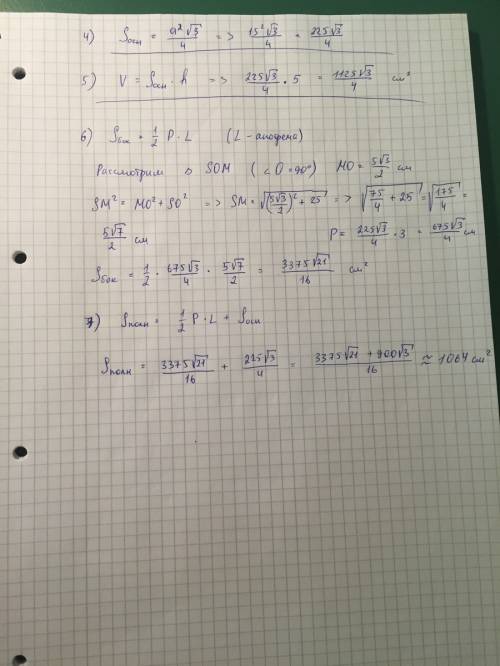 4) Sосн = a²√3/4 => 15²√3/4 = 225√3/4
5) V = Sосн · h => 225√3/4 · 5 = 1125√3/4 см²
6) Sбок = 1/2 P · L (L - апофема)
Рассмотрим △ SOM (∠O = 90°) MO = 5√3/2 см
SM² = MO² + SO² => SM = √((5√3/2)² + 25) => √(75/4 + 25) = √(175/4) =
5√7/2 см P = 225√3/4 · 3 = 675√3/4 см
Sбок = 1/2 · 675√3/4 · 5√7/2 = 3375√21/16 см²
7) Sполн = 1/2 P · L + Sосн
Sполн = 3375√21/16 + 225√3/4 = 3375√21 + 900√3/16 ≈ 1064 см²